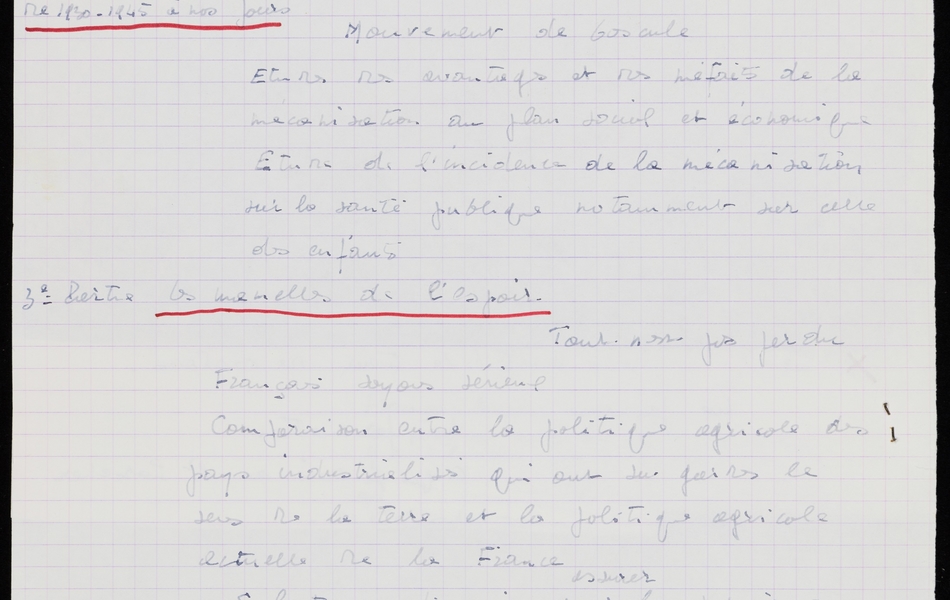 de 1930-1945 à nos jours
Mouvement de bascule
Etude des avantages et des méfaits de la
mécanisation au plan social et économique
Etude de l'incidence de la mécanisation
sur la santé publique notamment sur celle
des enfants
3e Partie les mamelles de l'espoir.
Tout n'est pas perdu
Français soyons sérieux
Comparaison entre la politique agricole des
pays industrialisés qui ont su garder le
sens de la terre et la politique agricole
actuelle de la France
assurer